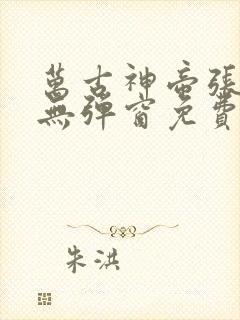 萬古神帝張
無彈窗免費
朱洪